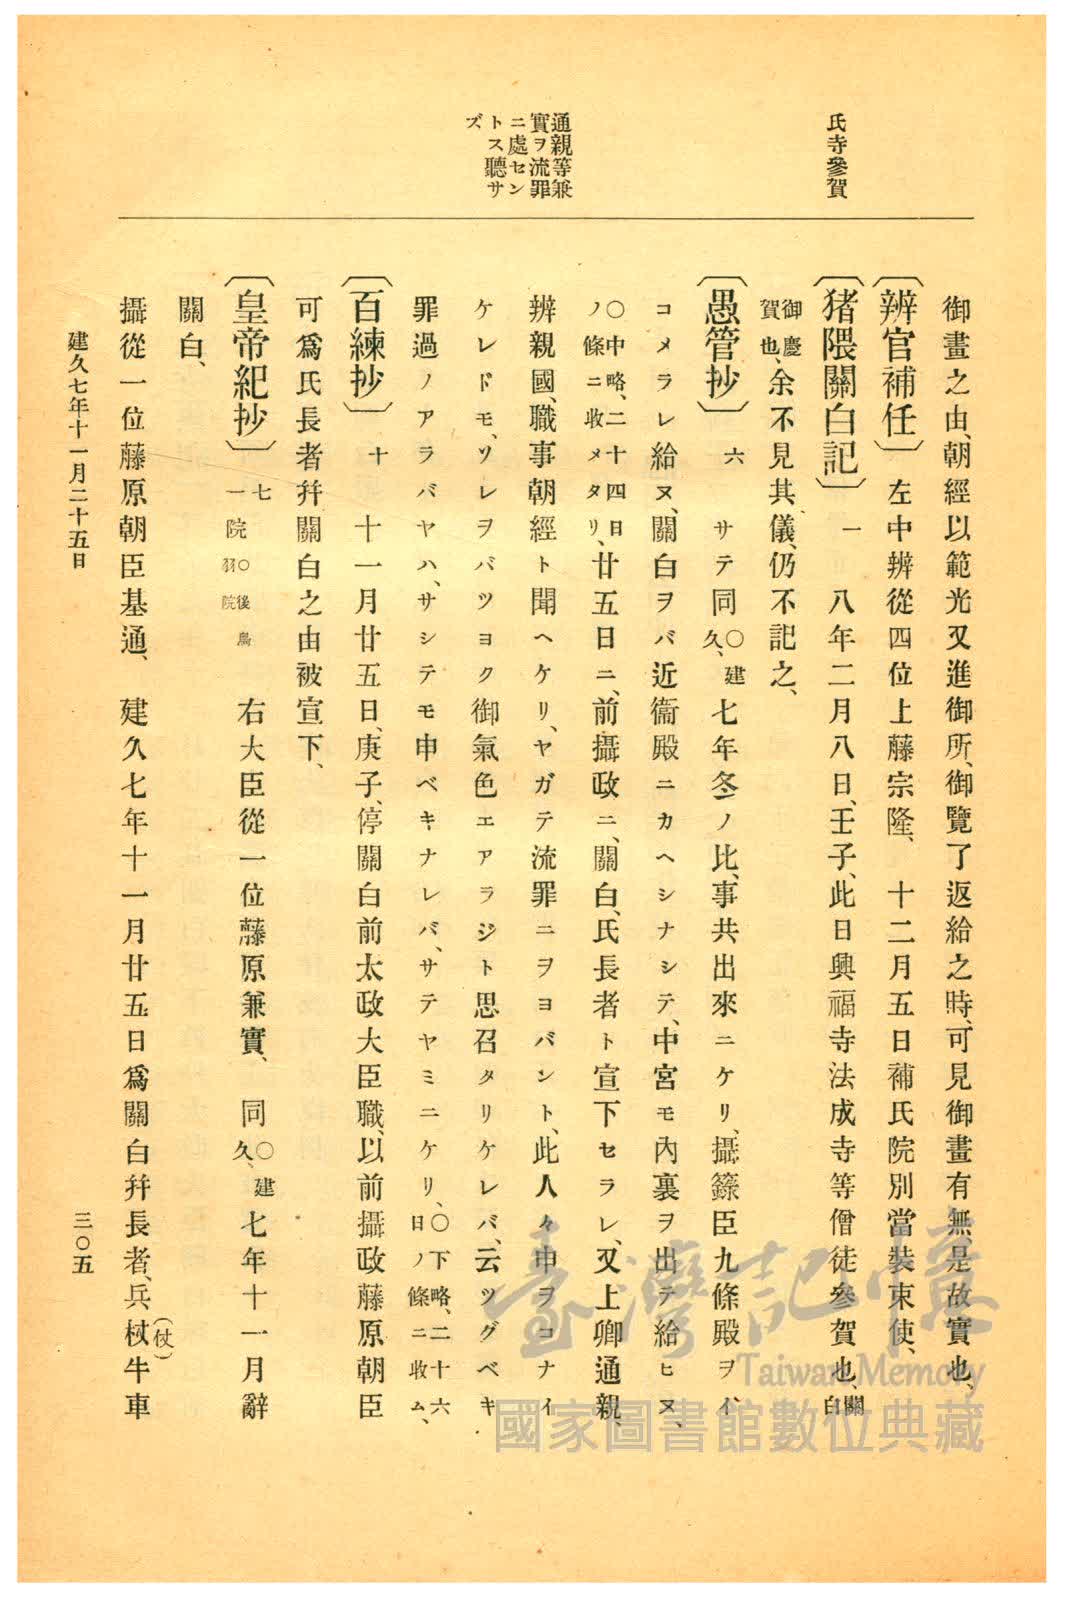 氏寺參賀
通親等兼
實ヲ流罪
ニ處セン
トス聽サ
ズ
御畫之由、朝經以範光又進御所、御覽了返給之時、可見御畫有無、是故實也、
〔辨官補任〕左中辨從四位上藤宗隆、十二月五日補氏院別當裝束使、
〔猪隈關白記〕一 八年二月八日、壬子、此日興福寺法成寺等僧徒參賀也、關白
御慶賀也、余不見其儀、仍不記之、
〔愚管抄〕六 サテ同〇建久、七年冬ノ比、事共出來ニケリ、攝籙臣九條殿ヲイ
コメラレ給ヌ、關白ヲバ近衞殿ニカヘシナシテ、中宮モ內裏ヲ出テ給ヒヌ、
〇中略、二十四日ノ條ニ收メタリ、廿五日ニ、前攝政ニ、關白、氏長者ト宣下セラレ、又上卿通親、
辨親國、職事朝經ト聞ヘケリ、ヤガテ流罪ニヲヨバント、此人々申ヲコナイ
ケレドモ、ソレヲバツヨク御氣色エアラジト思召タリケレバ、云ツグベキ
罪過ノアラバヤハ、サシテモ申ベキナレバ、サテヤミニケリ、〇下略、二十六日ノ條ニ收ム、
〔百練抄〕十 十一月廿五日、庚子、停關白前太政大臣職、以前攝政藤原朝臣
可爲氏長者幷關白之由被宣下、
〔皇帝紀抄〕七 一院〇後鳥羽院 右大臣從一位藤原兼實、同〇建久、七年十一月辭
關白、
攝從一位藤原朝臣基通、建久七年十一月廿五日爲關白幷長者、兵杖(仗)牛車
建久七年十一月二十五日
三〇五
臺灣記憶
Taiwan Memory
國家圖書館數位典藏